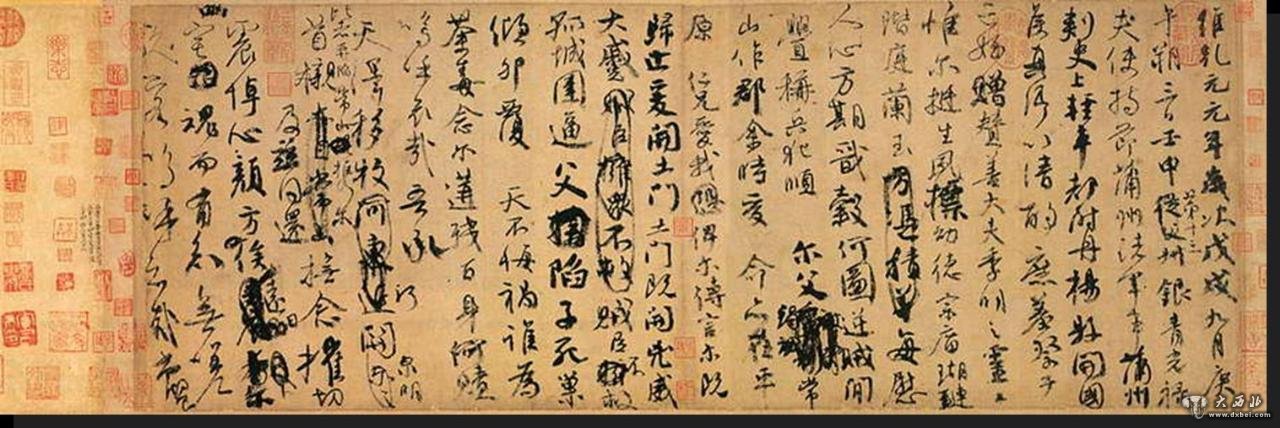 維乾元元年歲次戊戌九月庚
午朔三日壬申第十三叔銀青光祿
夫使持節蒲州諸軍事蒲州
刺史上輕車都尉丹楊縣開國
侯真卿以清酌庶羞祭于
亡姪贈贊善大夫季明之靈曰
惟爾挺生夙標幼德宗廟瑚璉
階庭蘭玉方憑積善每慰
人心方期戩穀何圖逆賊間
釁稱兵犯順爾父竭誠常
山作郡余時受命亦在平
原仁兄愛我俾爾傳言爾既
歸止爰開土門土門既開凶威
大蹙賊臣擁眾不救賊臣不救
孤城圍逼父陷子死巢
傾卵覆天不悔禍誰為
荼毒念爾遘殘百身何贖
嗚呼哀哉吾承
天澤移牧河關泉明
比者再陷常山携爾
首櫬及茲同還撫念摧切
震悼心顏方俟遠日
宅魂而有知無嗟
久客嗚呼哀哉尚饗
大西北
www.dxbei.com